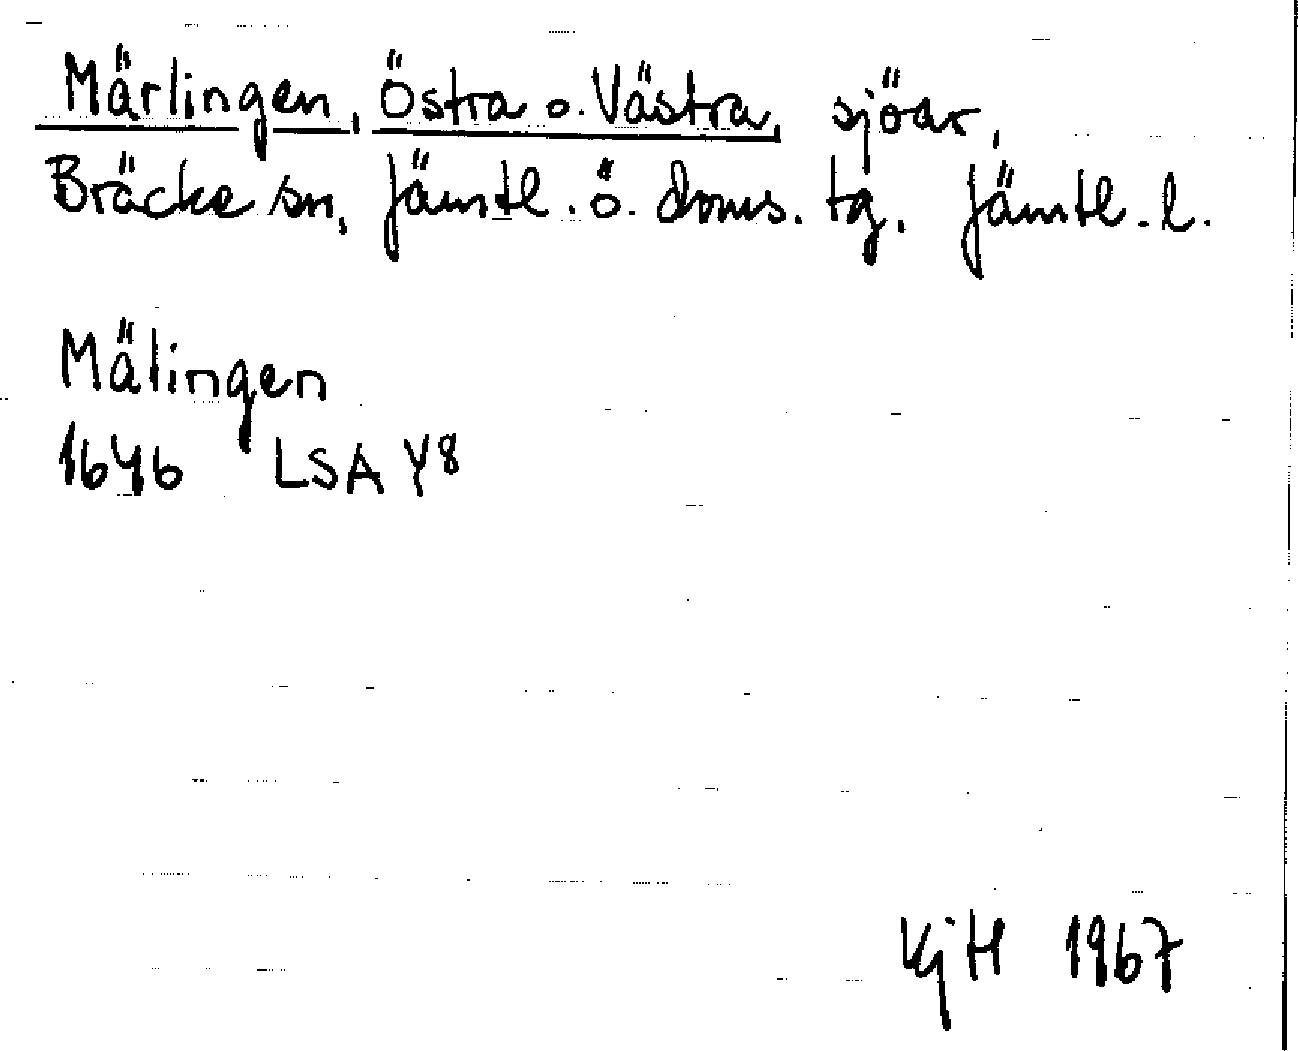 Märlingen, Östra o. Västra, sjöar,
Bräcke sn, Jämtl. ö. doms. tg. Jämtl. l.
Mälingen
1646 LSA Y8
KjH 1967